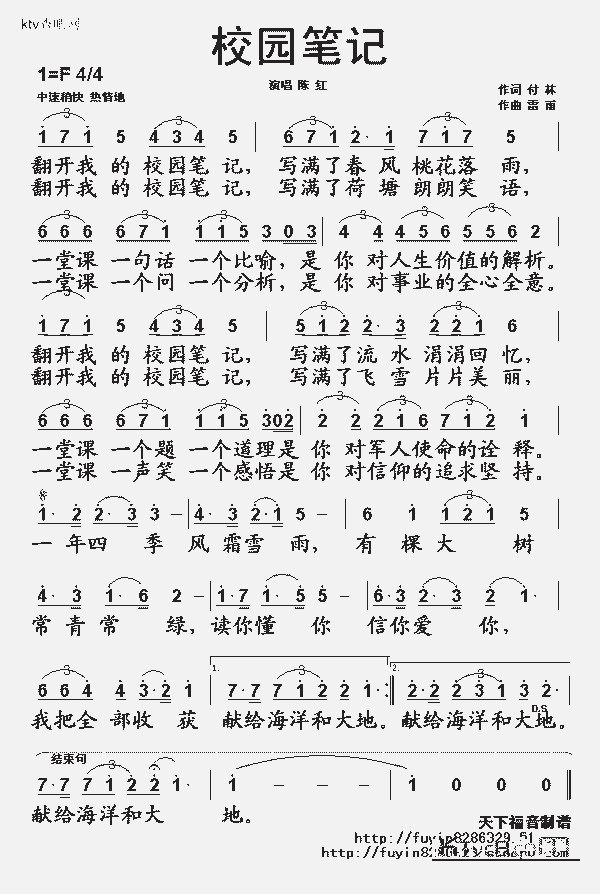 校园笔记
1=F 4/4
中速稍快 热情地
演唱 陈 红
作词 付 林
作曲 雷 雨
1 7 1 5 4 3 4 5 | 6 7 1 2· 1 7 1 7 5 |
翻开我 的 校园笔 记， 写满了春 风 桃花落 雨，
翻开我 的 校园笔 记， 写满了荷 塘 朗朗笑 语，
6 6 6 6 7 1 1 1 5 3 0 3 | 4 4 4 5 6 5 5 6 2 |
一堂课 一句话 一个比喻，是 你 对人生价值的解析。
一堂课 一个问 一个分析，是 你 对事业的全心全意。
1 7 1 5 4 3 4 5 | 5 1 2 2· 3 2 2 1 6 |
翻开我 的 校园笔 记， 写满了流 水 涓涓回 忆，
翻开我 的 校园笔 记， 写满了飞 雪 片片美 丽，
6 6 6 6 7 1 1 1 5 3 0 2 | 2 2 2 1 6 7 1 2 1 |
一堂课 一个题 一个道理是 你 对军人使命的诠 释。
一堂课 一声笑 一个感悟是 你 对信仰的追求坚 持。
1· 2 2· 3 3 － | 4· 3 2· 1 5 － | 6 1 1 2 1 5 |
一 年四 季 风 霜雪 雨， 有 棵大 树
4· 3 1· 6 2 － | 1· 7 1· 5 5 － | 6· 3 2· 3 2 1· |
常 青常 绿，读你懂 你 信你爱 你，
1. 2.
6 6 4 4 3· 2 1 | 7· 7 7 1 2 2 1· :| 2· 2 2 3 1 3 2· |
D.S
我把全 部收 获 献给海洋和大地。献给海洋和大地。
结束句
7· 7 7 1 2 2 1· | 1 － － － | 1 0 0 0 ‖
献给海洋和大 地。
天下福音制谱